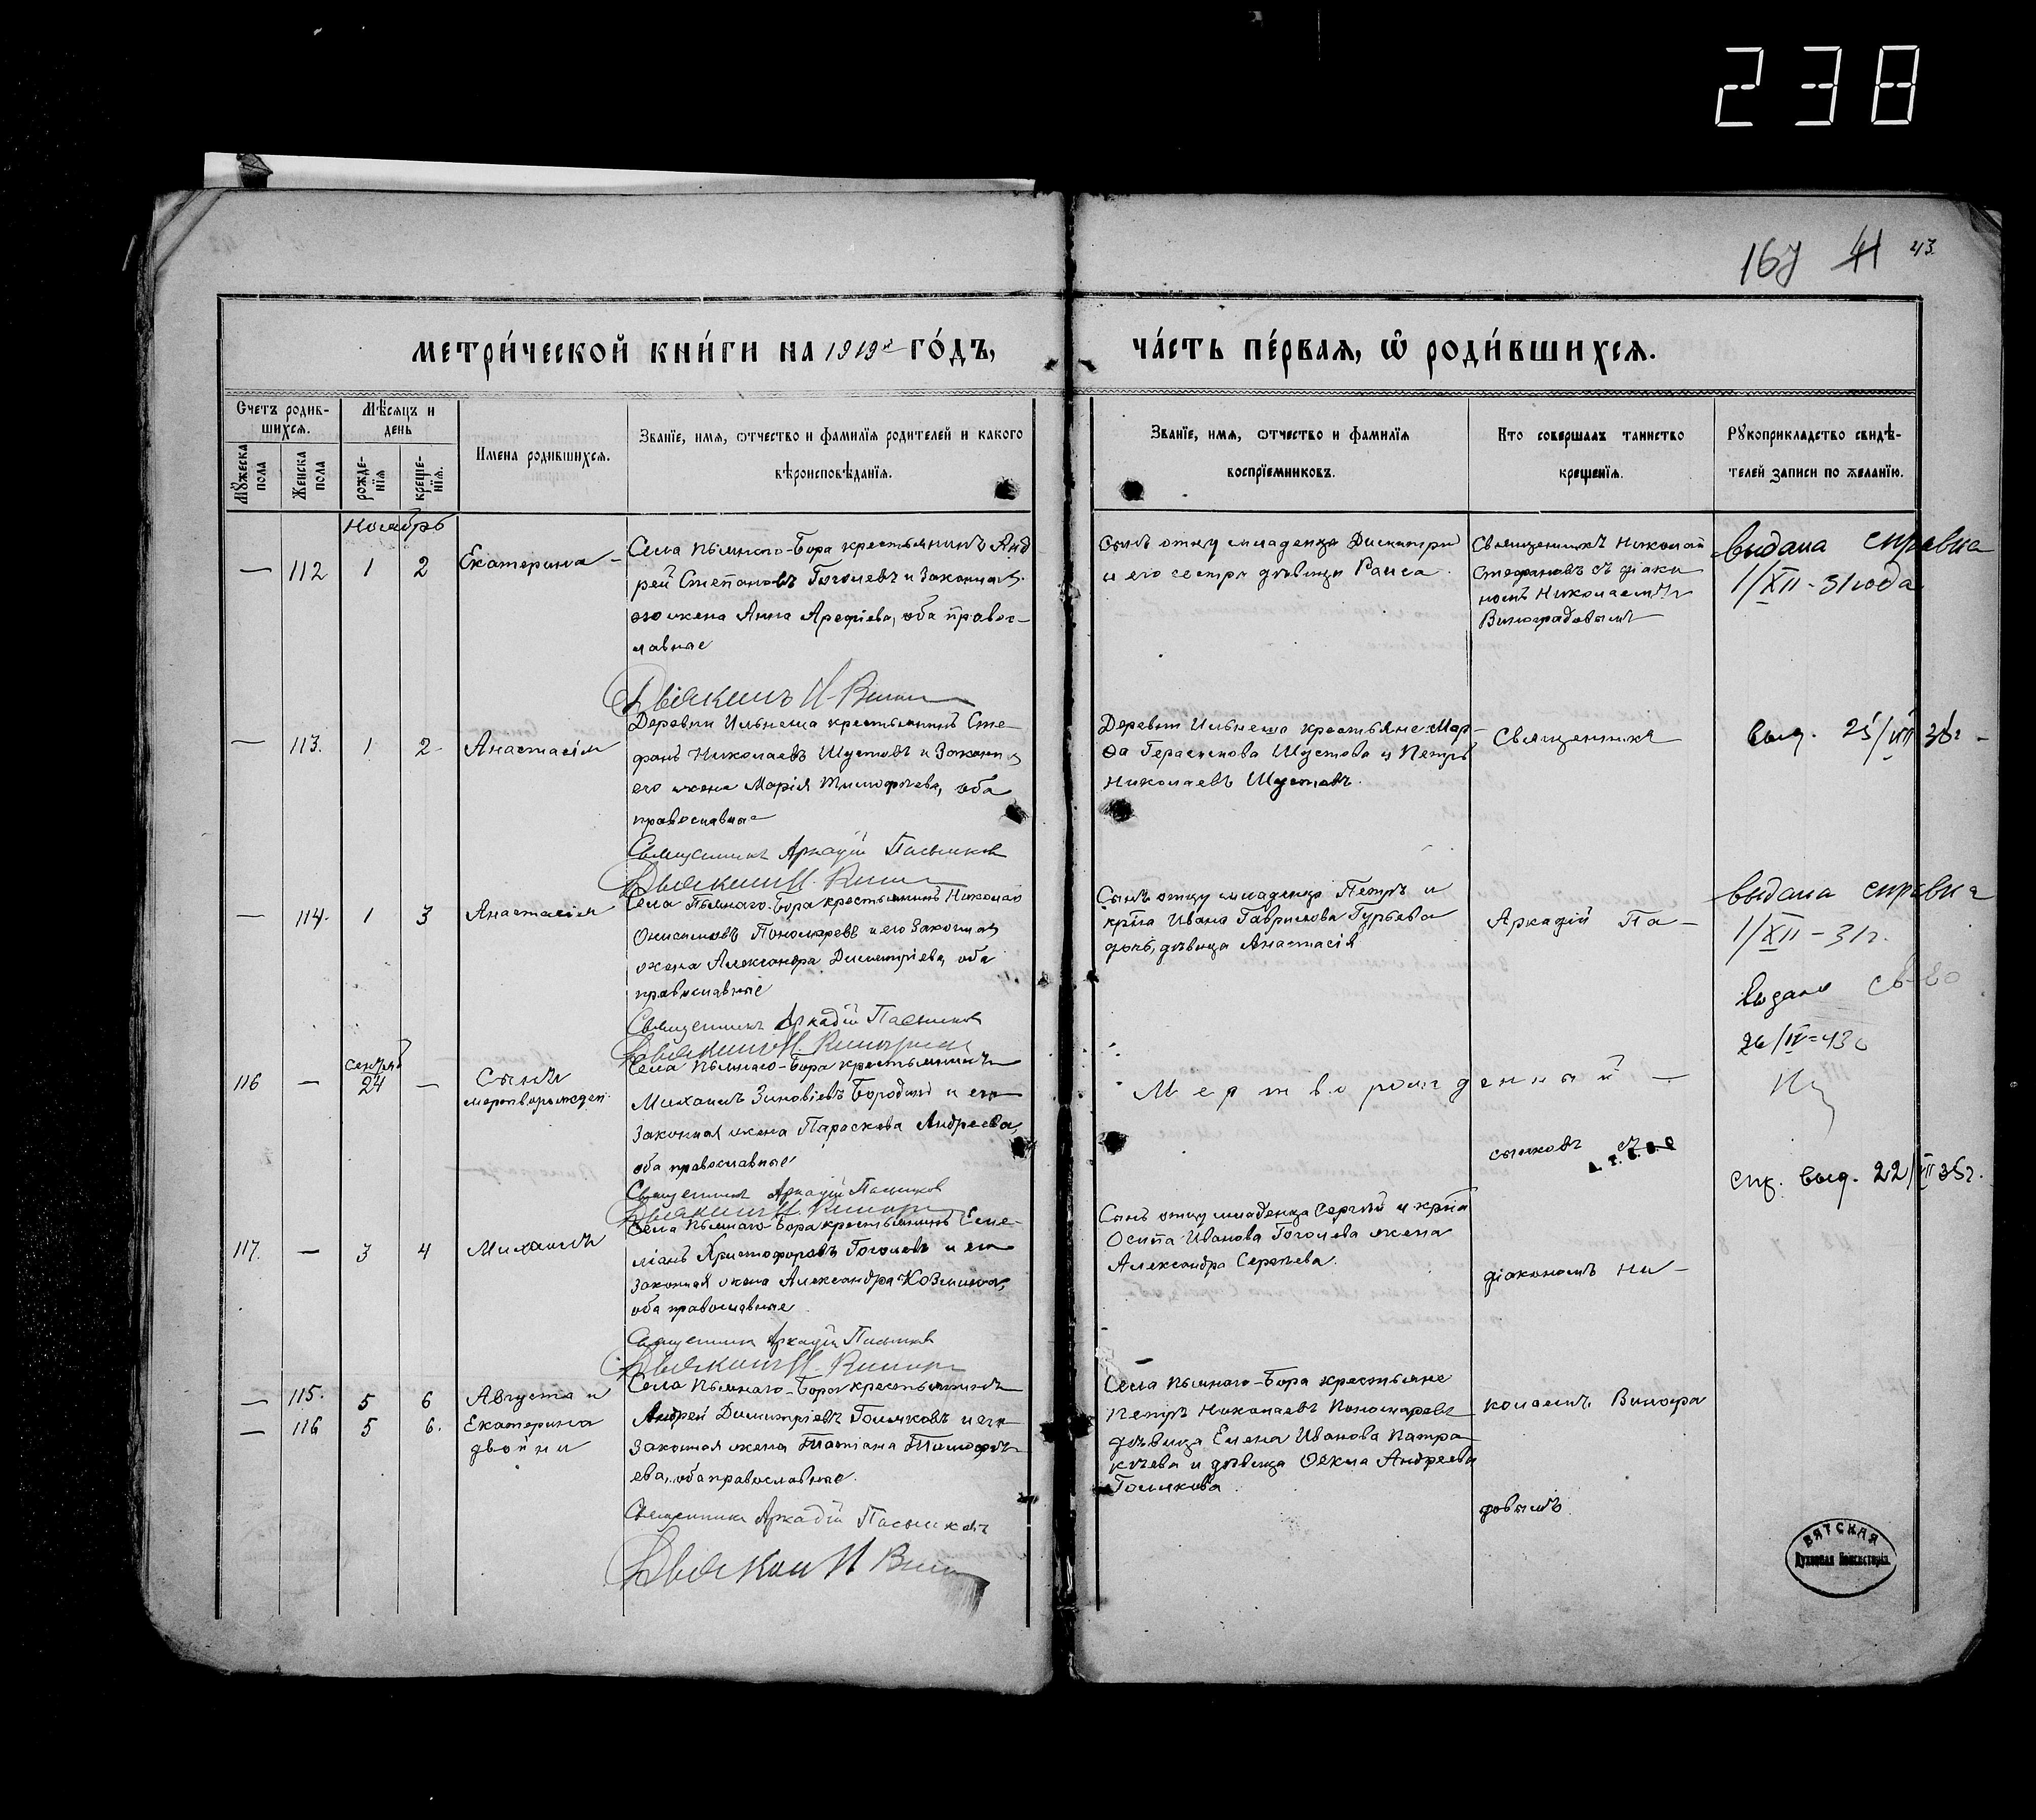 238
167 41 43
МЕТРИ́ЧЕСКОЙ КНИ́ГИ НА 1919й ГО́ДЪ,
ЧА́СТЬ ПЕ́РВАЯ, Ѿ РОДИ́ВШИХСЯ.
Счетъ родив-
шихся.
Мѣсяцъ и
день
Мꙋжеска
пола
Женска
пола
рожде-
нїя
креще-
нїя.
Имена родившихся.
Званїе, имя, ѿтчество и фамилїя родителей и какого
вѣроисповѣданїя.
Званїе, имя, ѿтчество и фамилїя
воспрїемниковъ.
Кто совершалъ таинство
крещенїя.
Рꙋкоприкладство свидѣ-
телей записи по желанїю.
Ноябрь
— 112 1 2 Екатерина —
Села Пьянаго-Бора крестьянинъ Анд
рей Степановъ Гоголевъ и законная
его жена Анна Арефіева, оба правос-
лавные
Діаконъ Н.
Сынъ отцу младенца Димитрій
и его сестра дѣвица Раиса.
Священникъ Николай
Стефановъ съ діако
номъ Николаемъ
Виноградовымъ
выдана справка
1/XII - 31 года
— 113. 1 2 Анастасія
Деревни Ильнеша крестьянинъ Сте-
фанъ Николаевъ Шустовъ и законная
его жена Марія Тимофѣева, оба
православные
Священникъ Аркадій Пасынков
Діаконъ Н.
Деревни Ильнеша крестьяне Мар-
ѳа Герасимова Шустова и Петръ
Николаевъ Шустовъ.
Священникъ
выд. 25/VII 35г.
— 114. 1 3 Анастасія
Села Пьянаго-Бора крестьянинъ Николай
Онисимовъ Пономаревъ и его законная
жена Александра Димитріева, оба
православные
Священникъ Аркадій Пасынков
Діаконъ Н.
Сынъ отцу младенца Петръ и
крна Ивана Гаврилова Гурьева
дочь, дѣвица Анастасія
Аркадій Па-
выдана справка
1/XII - 31г.
выдано св-во
26/IV-43г
116 — Сентября 24 — Сынъ
мертворожден.
Села Пьянаго-Бора крестьянинъ
Михаилъ Зиновіевъ Бородинъ и его
законная жена Параскева Андреева,
оба православные
Священникъ Аркадій Пасынков
Діаконъ Н.
Мертворожденный —
сынковъ съ
спр. выд. 22/III 35г.
117. — 3 4 Михаилъ
Села Пьянаго-Бора крестьянинъ Еме-
ліанъ Христофоровъ Гоголевъ и его
законная жена Александра Козмина,
оба православные
Священник Аркадій Пасынков
Діаконъ Н.
Сынъ отцу младенца Сергѣй и крна
Осипа Иванова Гоголева жена
Александра Сергѣева.
діакономъ Ни-
— 115. 5 6 Августа и
— 116 5 6. Екатерина
двойни
Села Пьянаго-Бора крестьянинъ
Андрей Димитріевъ Голяковъ и его
законная жена Татіана Тимофѣ-
ева, оба православные.
Священникъ Аркадій Пасынковъ
Діакон Н
Села Пьянаго-Бора крестьяне
Петръ Николаевъ Пономаревъ
дѣвица Елена Иванова Патра
кѣева и дѣвица Ѳекла Андреева
Голякова.
колаемъ Виногра
довымъ
ВЯТСКАЯ
Духовная Консисторія